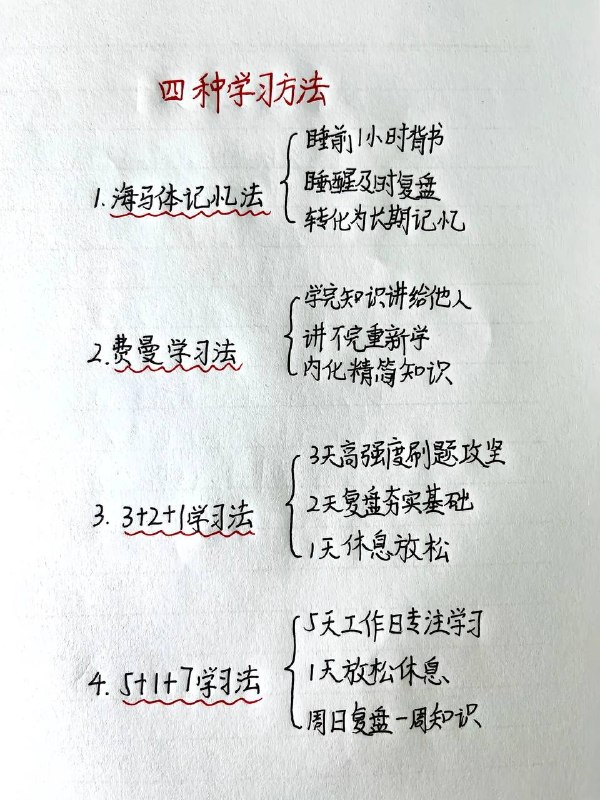 四种学习方法
1.海马体记忆法
睡前1小时背书
睡醒及时复盘
转化为长期记忆
2.费曼学习法
学完知识讲给他人
讲不完重新学
内化精简知识
3. 3+2+1学习法
3天高强度刷题攻坚
2天复盘夯实基础
1天休息放松
4. 5+1+7学习法
5天工作日专注学习
1天放松休息
周日复盘一周知识